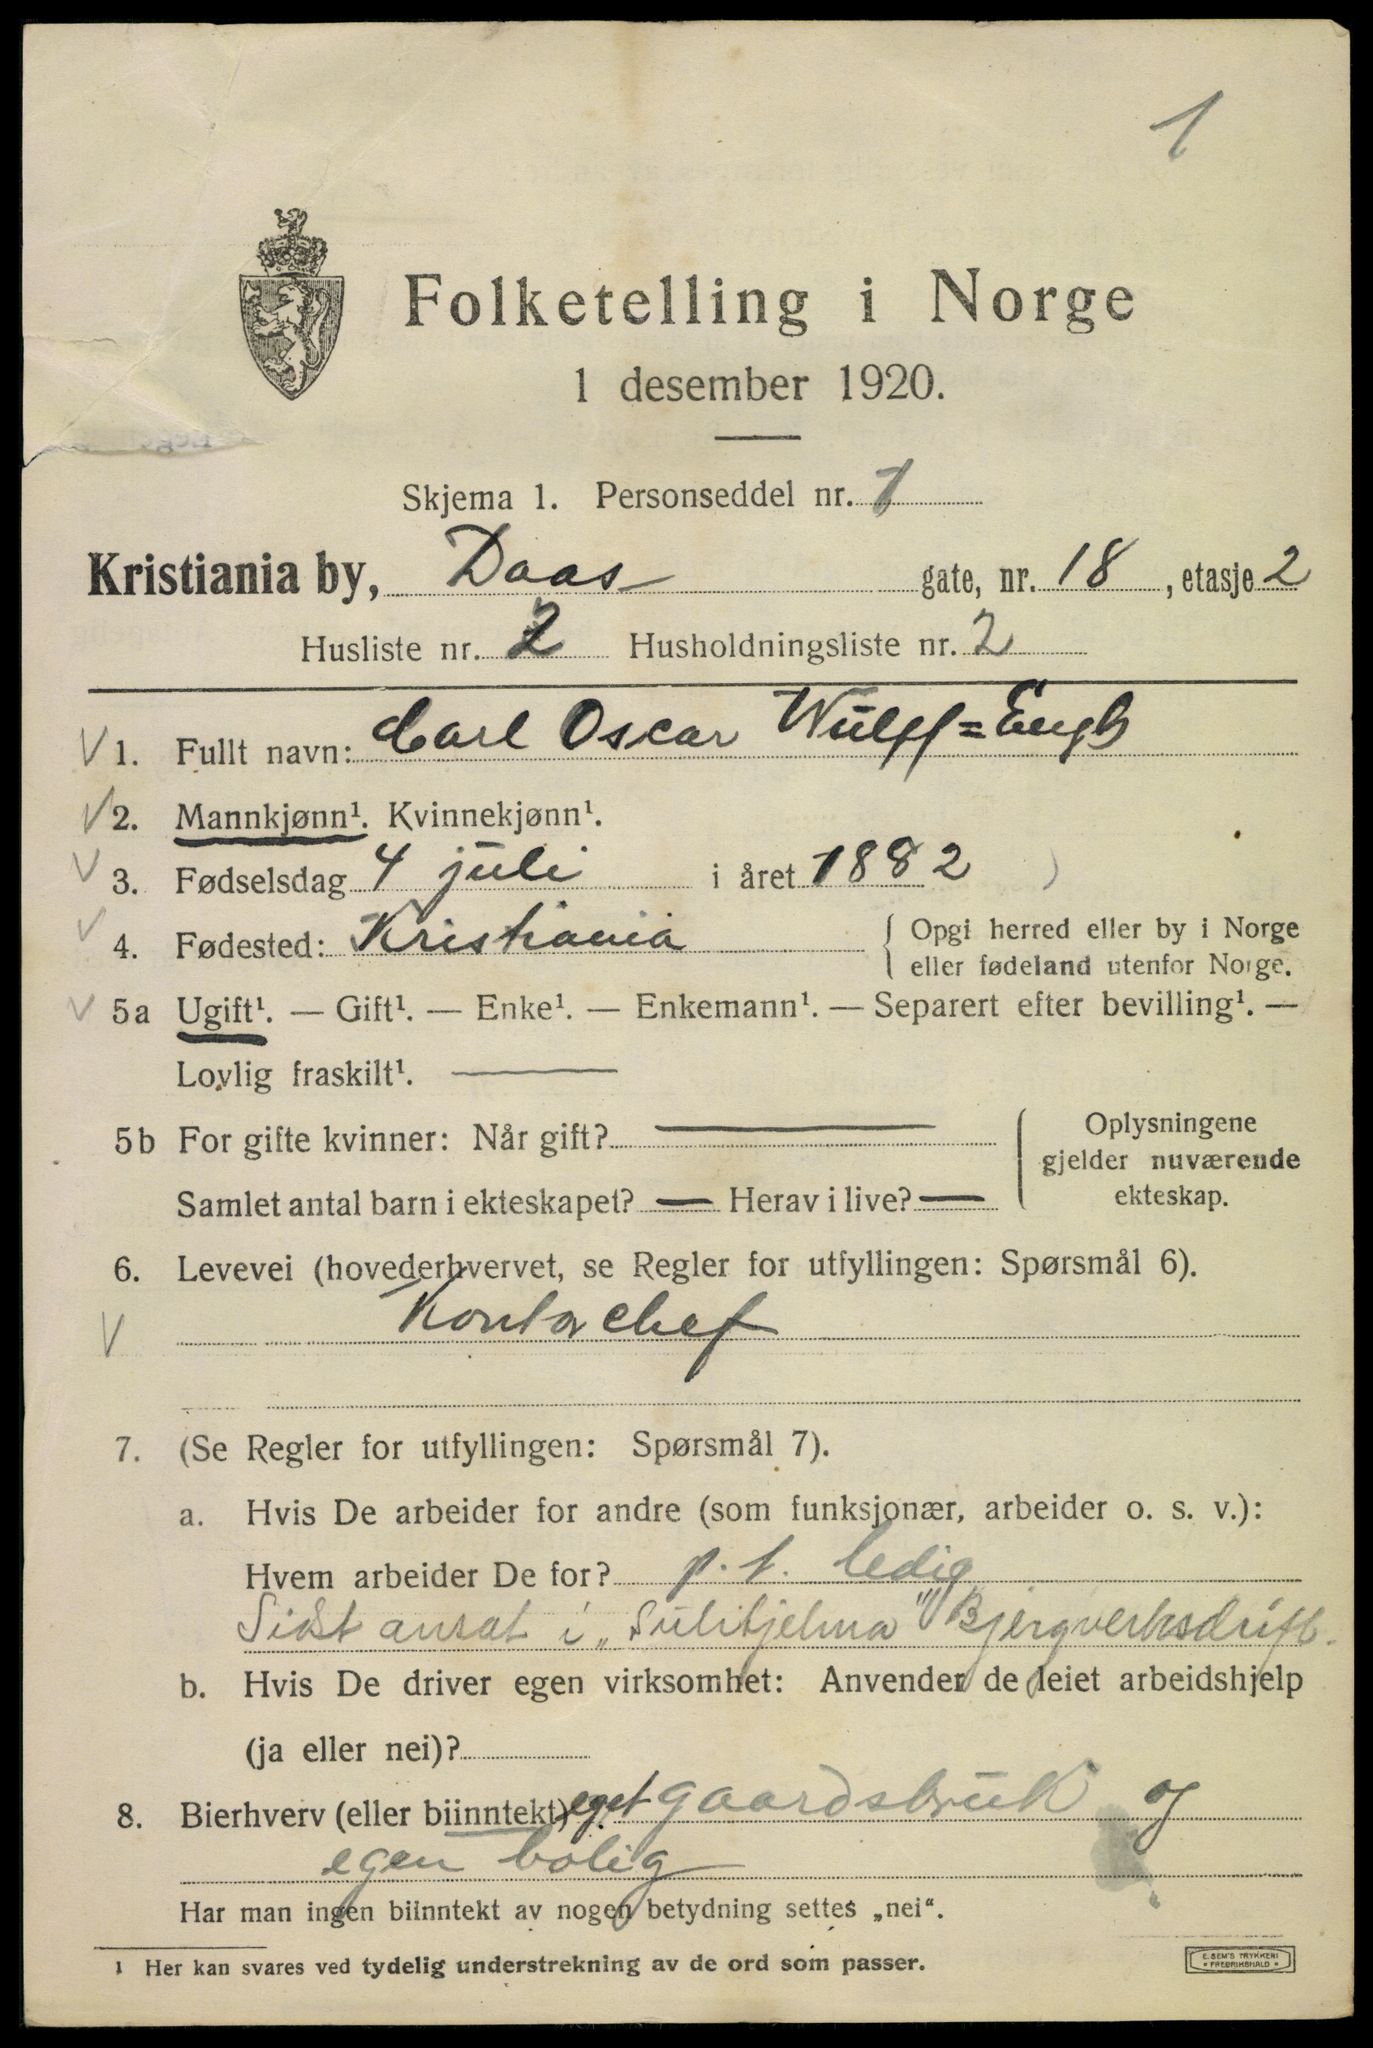 1
Folketelling i Norge
1 desember 1920.
Skjema 1. Personseddel nr. 1
Kristiania by, Daas gate, nr. 18, etasje 2
Husliste nr. 2 Husholdningsliste nr. 2
V 1. Fullt navn: Carl Oscar Wulff=Engh
V 2. Mannkjønn¹. Kvinnekjønn¹.
V 3. Fødselsdag 4 juli i året 1882
V 4. Fødested: Kristiania { Opgi herred eller by i Norge
eller fødeland utenfor Norge.
V 5a Ugift¹. — Gift¹. — Enke¹. — Enkemann¹. — Separert efter bevilling¹. —
Lovlig fraskilt¹. —
5b For gifte kvinner: Når gift? — { Oplysningene
gjelder nuværende
ekteskap.
Samlet antal barn i ekteskapet? — Herav i live? —
6. Levevei (hovederhvervet, se Regler for utfyllingen: Spørsmål 6).
V Kontorchef
7. (Se Regler for utfyllingen: Spørsmål 7).
a. Hvis De arbeider for andre (som funksjonær, arbeider o. s. v.):
Hvem arbeider De for? p. t. ledig
Sidst ansat i „Sulitjelma" Bjergverksdrift.
b. Hvis De driver egen virksomhet: Anvender de leiet arbeidshjelp
(ja eller nei)?
8. Bierhverv (eller biinntekt) eget gaardsbruk og
egen bolig
Har man ingen biinntekt av nogen betydning settes „nei“.
1 Her kan svares ved tydelig understrekning av de ord som passer.
E. SEM'S TRYKKERI
* FREDRIKSHALD *